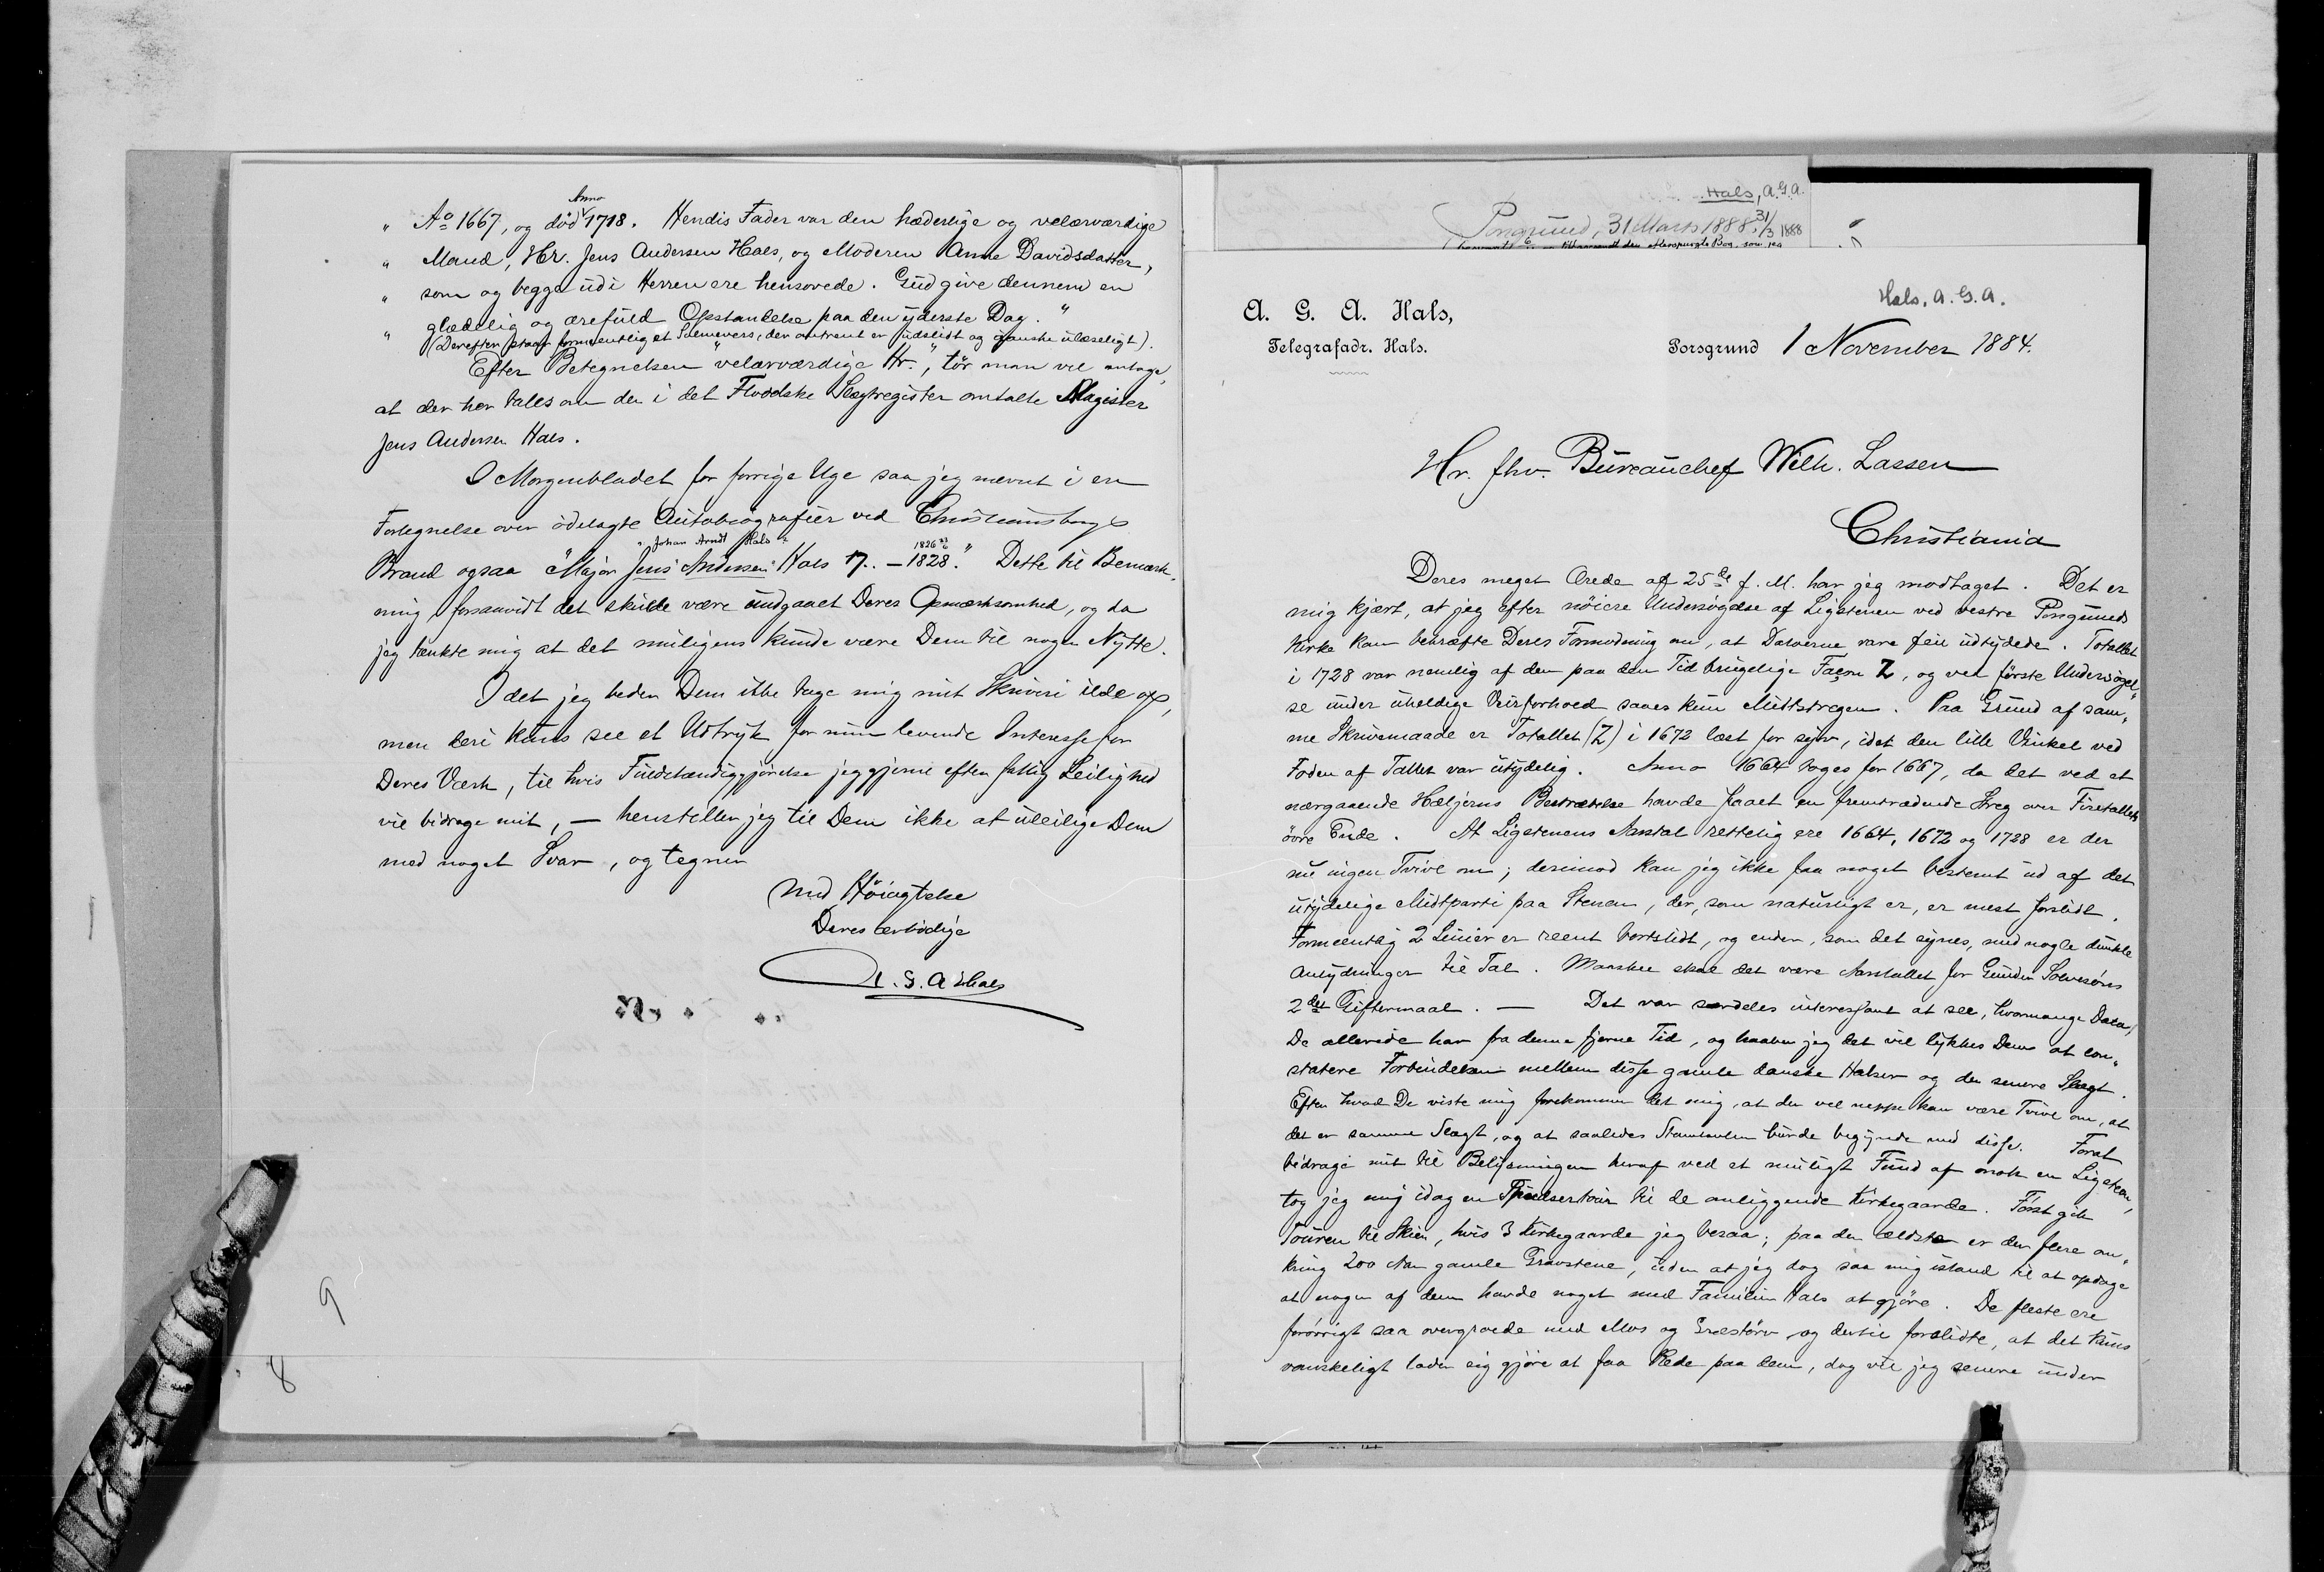 Anno
" Ao 1667, og död 1718. Hendis Fader var den hæderlige og velærværdige
" Mand, Hr. Jens Andersen Hals, og Moderen Anne Davidsdatter,
" som og begge udi Herren ere hensovede. Gud give dennem en
" glædelig og ærefuld Opstandelse paa den yderste Dag. "
(Derefter staar formentlig et Salmevers, der omtrent er udslidt og ganske ulæseligt).
Efter Betegnelsen "velærværdige Hr.", tör man vel antage,
at der her tales om den i det Floodske Slægtregister omtalte Magister
Jens Andersen Hals.
I Morgenbladet for forrige Uge saa jeg nævnt i en
Fortegnelse over ödelagte Autobiografier ved Christiansborgs
"Johan Arndt Hals" 1826
Brand ogsaa "Major Jens Andersen Hals 17.. – 1828." Dette til Bemærk-
ning forsaavidt det skulde være undgaaet Deres Opmærksomhed, og da
jeg tænkte mig at det muligens kunde være Dem til nogen Nytte.
Idet jeg beder Dem ikke tage mig mit Skriveri ilde op,
men deri kuns see et Udtryk for min levende Interesse for
Deres Værk, til hvis Fuldstændiggjörelse jeg gjerne efter fattig Leilighed
vil bidrage mit, – henstiller jeg til Dem ikke at uleilige Dem
med noget Svar, og tegner
Med Höiagtelse
Deres ærbödige
A. G. A Hals
9
8
Hals, A.G.A.
Porsgrund, 31 Marts 1888. 31/3 1888
Hals, A.G.A.
A. G. A. Hals,
Telegrafadr. Hals.
Porsgrund 1 November 1884.
Hr. fhv. Bureauchef Wilh. Lassen
Christiania
Deres meget Ærede af 25de f. M. har jeg modtaget. Det er
mig kjært, at jeg efter nöiere Undersögelse af Ligstenen ved vestre Porsgrunds
Kirke kan bekræfte Deres Formodning om, at Datoerne vare feil udtydede. Totallet
i 1728 var nemlig af den paa den Tid brugelige Façon Z, og ved förste Undersögel-
se under uheldige Veirforhold saaes kun Midtstregen. Paa Grund af sam-
me Skrivemaade er Totallet (Z) i 1672 læst for syv, idet den lille Vinkel ved
Foden af Tallet var utydelig. Anno 1664 toges for 1667, da det ved et
nærgaaende Hæljerns Berörelse havde faaet en fremtrædende Streg over Firetallets
övre Ende. At Ligstenens Aarstal rettelig ere 1664, 1672 og 1728 er der
nu ingen Tvivl om; derimod kan jeg ikke faa noget bestemt ud af det
utydelige Midtparti paa Stenen, der, som naturligt er, er mest forslidt.
Formeentlig 2 Linier er reent bortslidt, og ender, som det synes, med nogle dunkle
Antydninger til Tal. Maaskee skal det være Aarstallet for Gunder Solvesöns
2det Giftermaal. — Det var særdeles interessant at see, hvormange Data,
De allerede har fra denne fjerne Tid, og haaber jeg det vil lykkes Dem at con-
statere Forbindelsen mellem disse gamle danske Halser og den senere Slægt.
Efter hvad De viste mig forekommer det mig, at der vel neppe kan være Tvivl om, at
det er samme Slægt, og at saaledes Stamtavlen burde begynde med disse. Forat
bidrage mit til Belysningen heraf ved et muligt Fund af nok en Ligsteen,
tog jeg mig idag en Spadsertour til de omliggende Kirkegaarde. Först gik
Touren til Skien, hvis 3 Kirkegaarde jeg besaa; paa den ældste er der flere om-
kring 200 Aar gamle Gravstene, uden at jeg dog saa mig istand til at opdage
at nogen af dem havde noget med Familien Hals at gjöre. De fleste ere
forövrigt saa overgroede med Mos og Græstörv og dertil forslidte, at det kuns
vanskeligt lader sig gjöre at faa Rede paa dem, dog vil jeg senere under